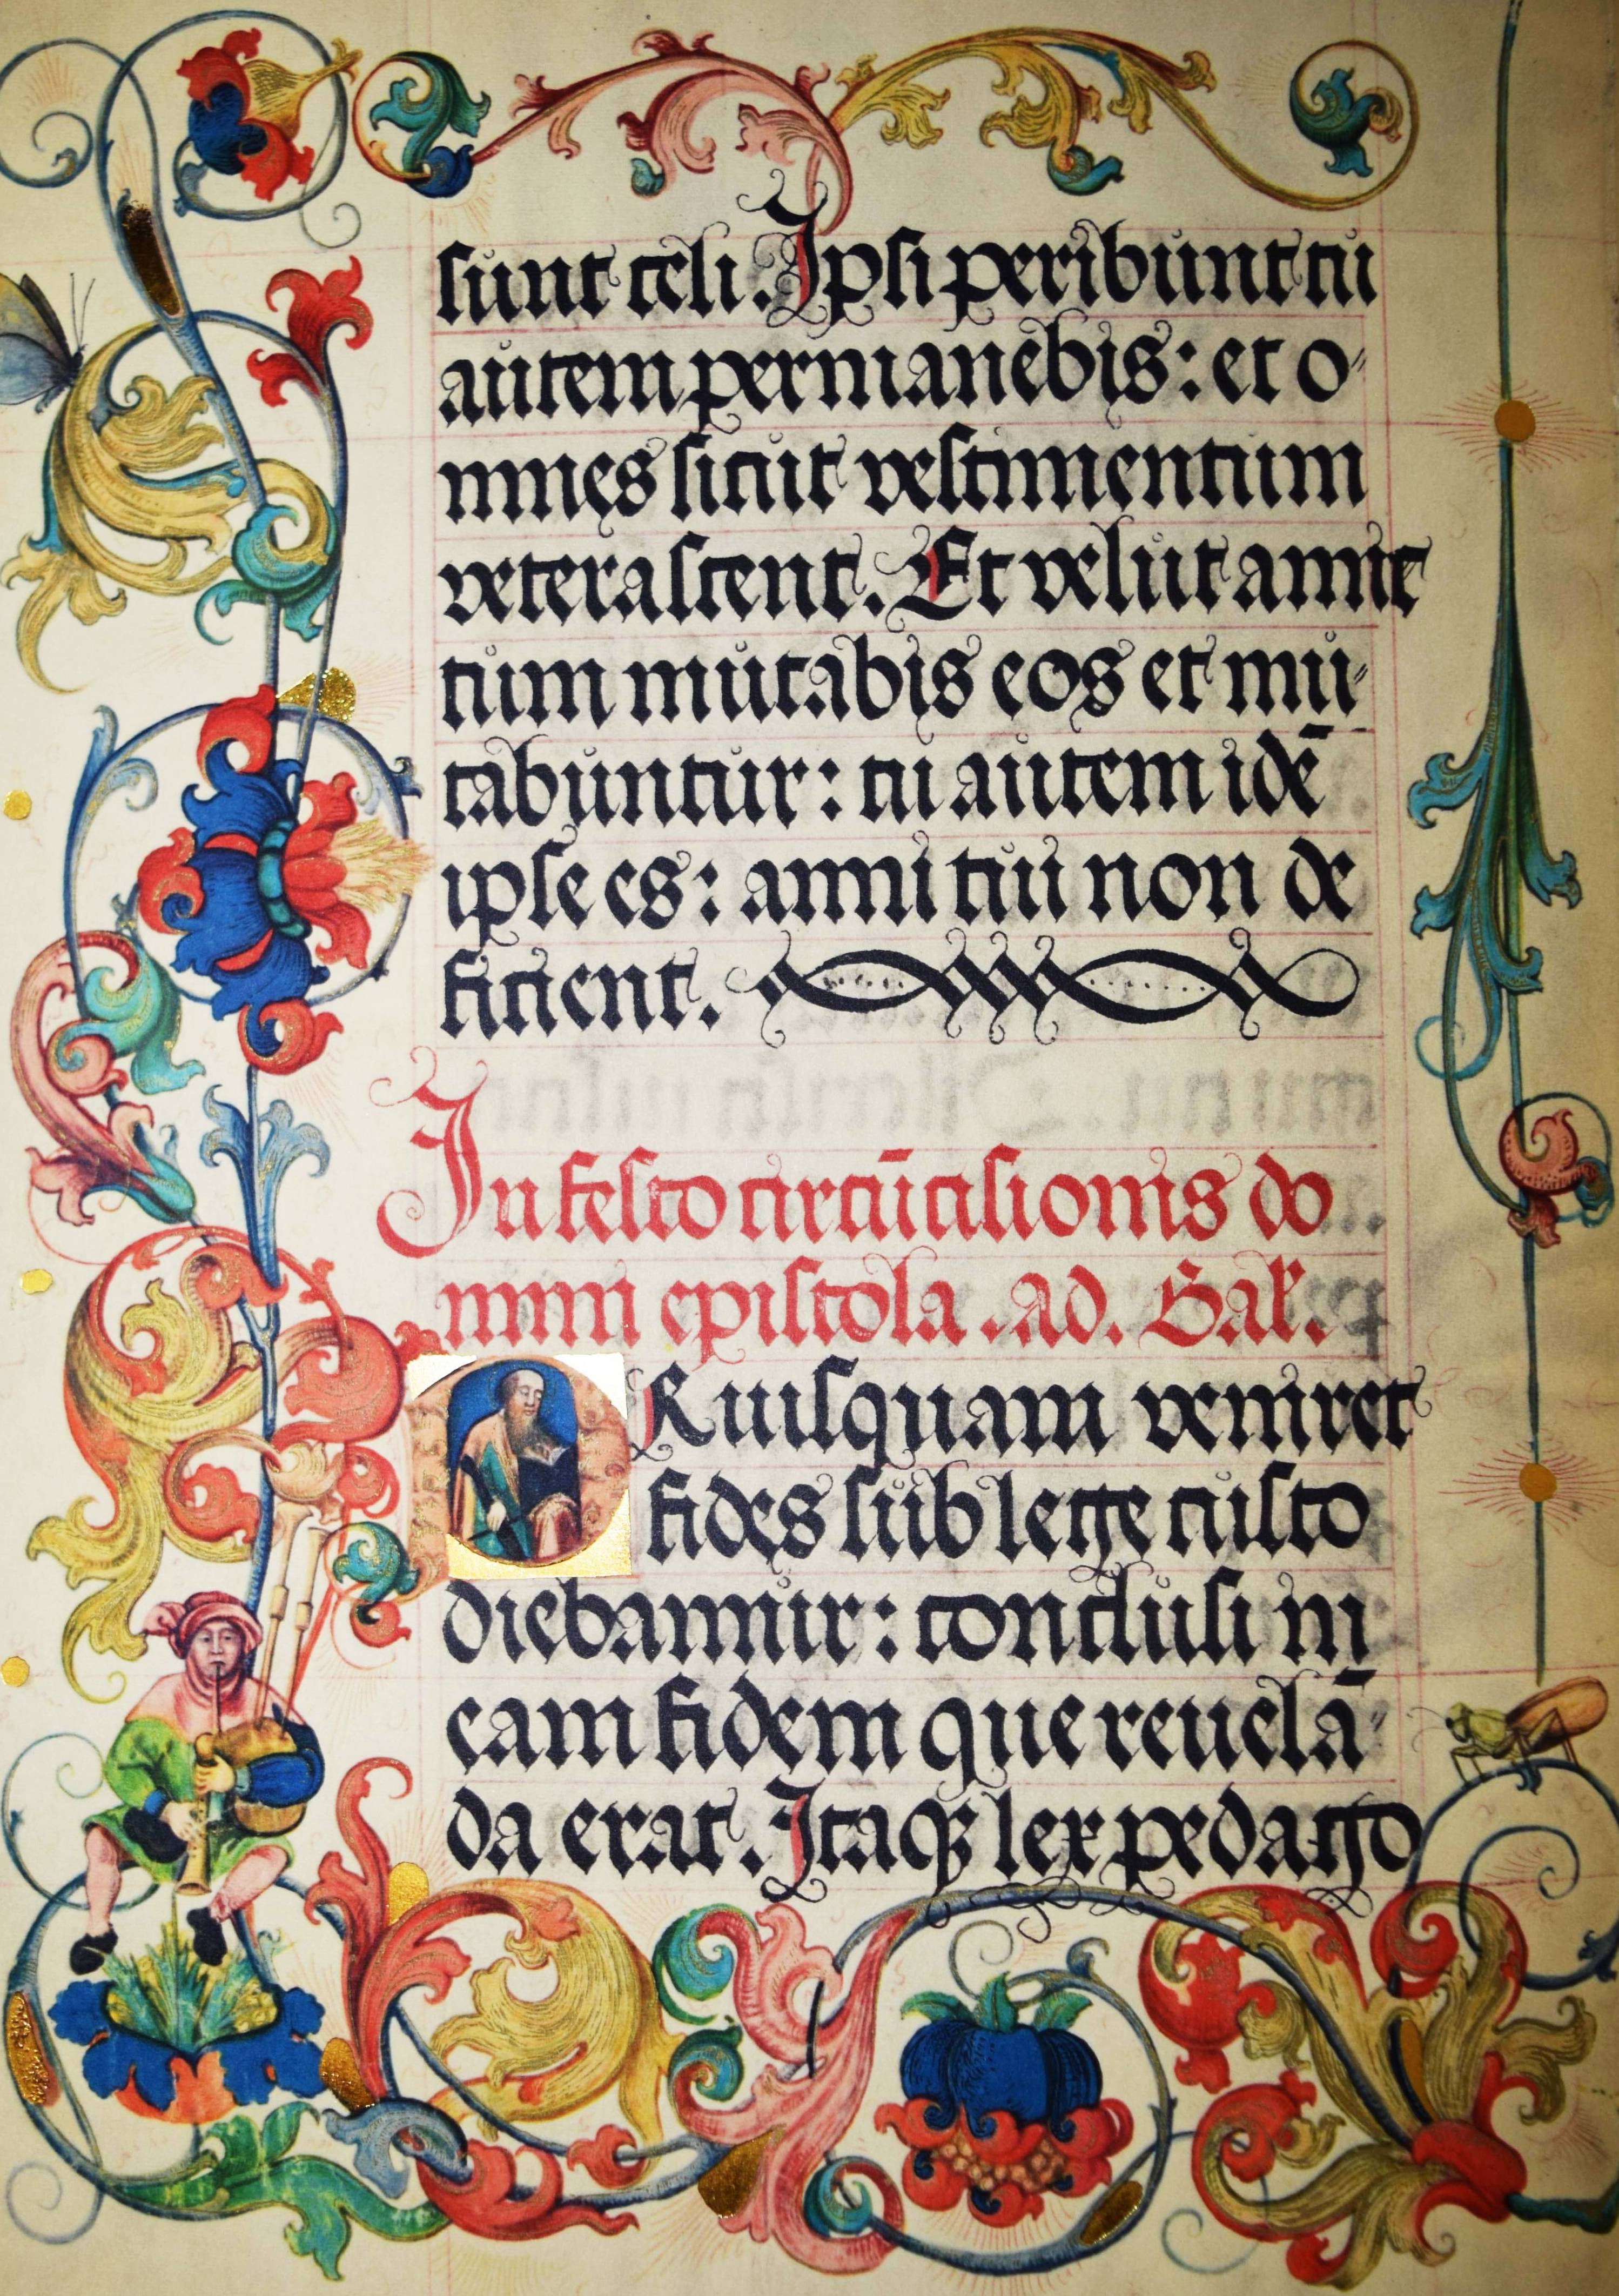 sunt celi. Ipsi peribunt tu
autem permanebis: et o-
mnes sicut vestimentum
veterascent. Et velut amic
tum mutabis eos et mu-
tabuntur: tu autem idē
ipse es: anni tui non de
ficient.
In festo circūcisionis do
mini epistola .ad. Gal.
PRiusquam veniret
fides sub lege custo
diebamur: conclusi in
eam fidem que reuelā-
da erat. Itaqꝫ lex pedago